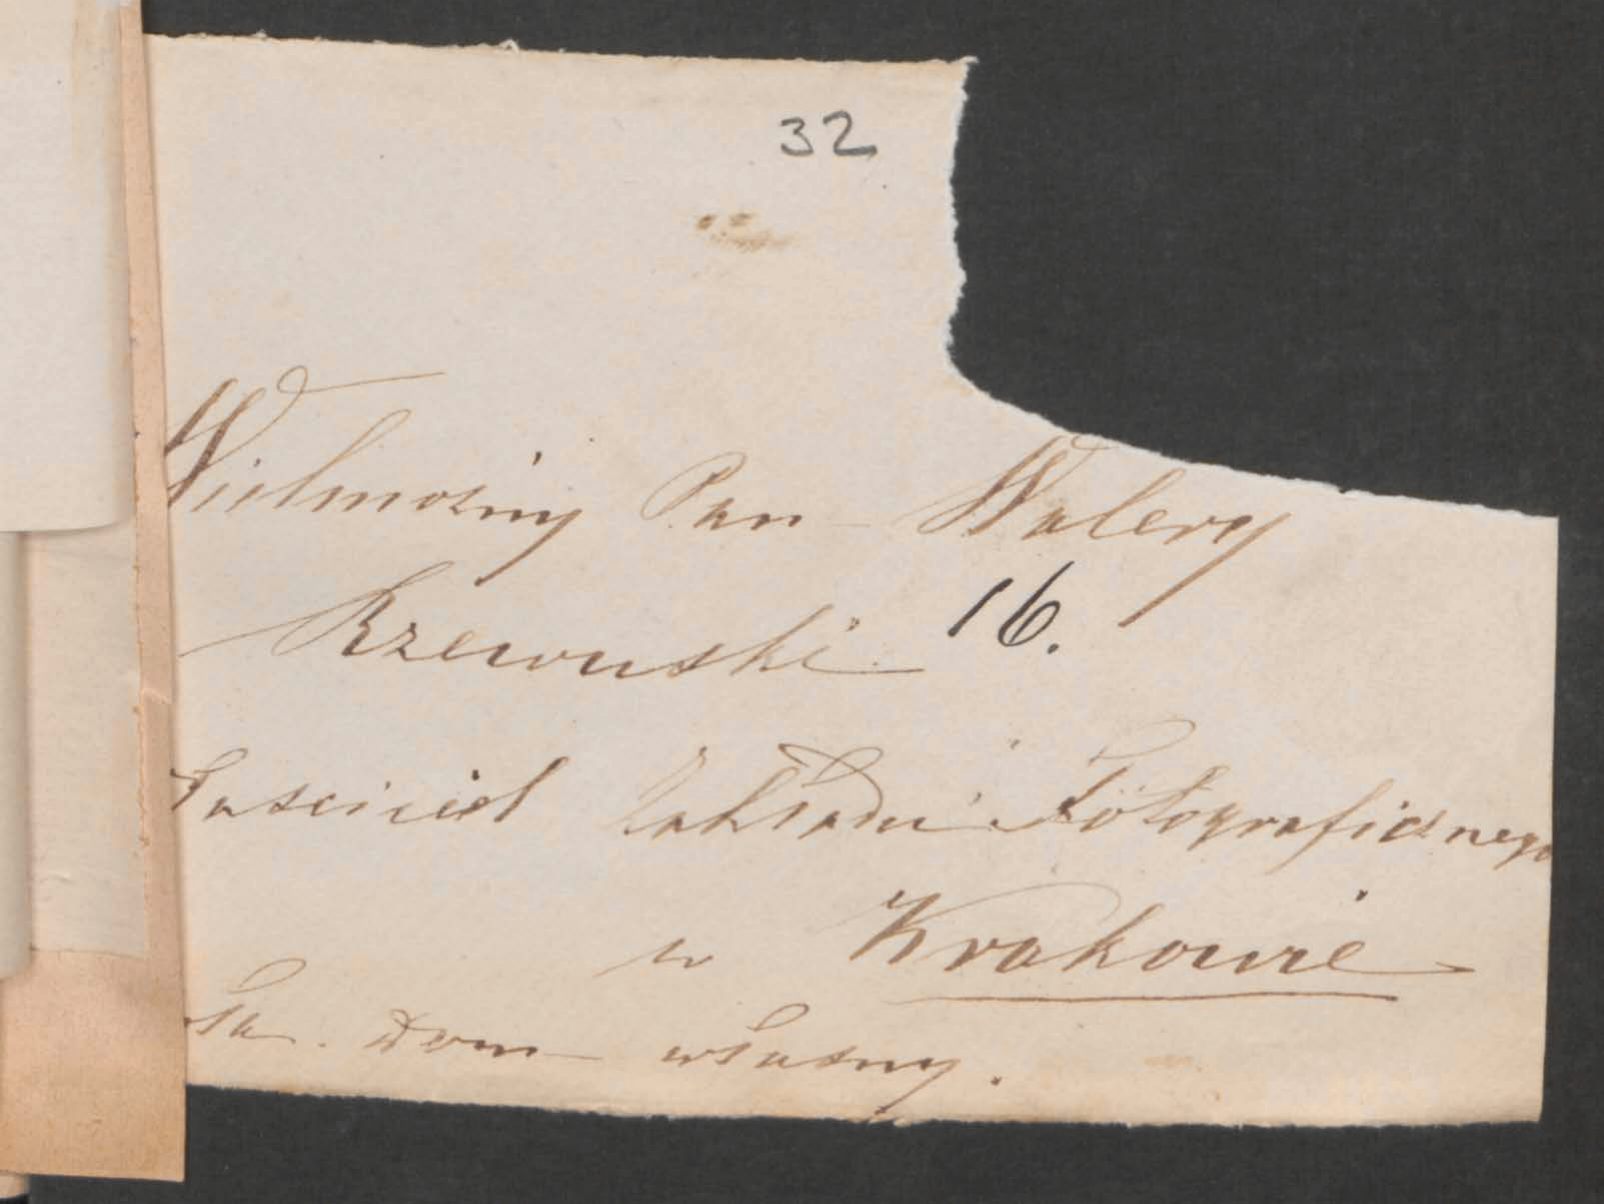 32
Wielmożny Pan Walery
Rzewuski 16.
łaściciel Zakładu Fotograficznego
w Krakowie
Dom własny.